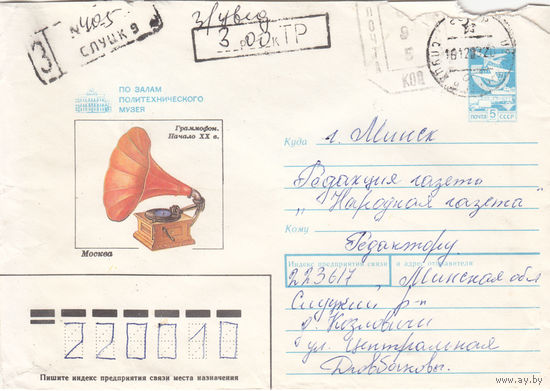 З
№405
СЛУЦК 9
З/увед
3 р 00 к ТР
ПОЧТА
95
КОП
161292
ПО ЗАЛАМ
ПОЛИТЕХНИЧЕСКОГО
МУЗЕЯ
ПОЧТА 5 СССР
Граммофон.
Начало XX в.
Москва
Куда г. Минск
Редакция газеты
"Народная газета"
Кому Редактору
Индекс предприятия связи и адрес отправителя
223617, Минская обл
Слуцкий р-н
д. Козловичи
ул. Центральная
220010
Пишите индекс предприятия связи места назначения
www.ay.by